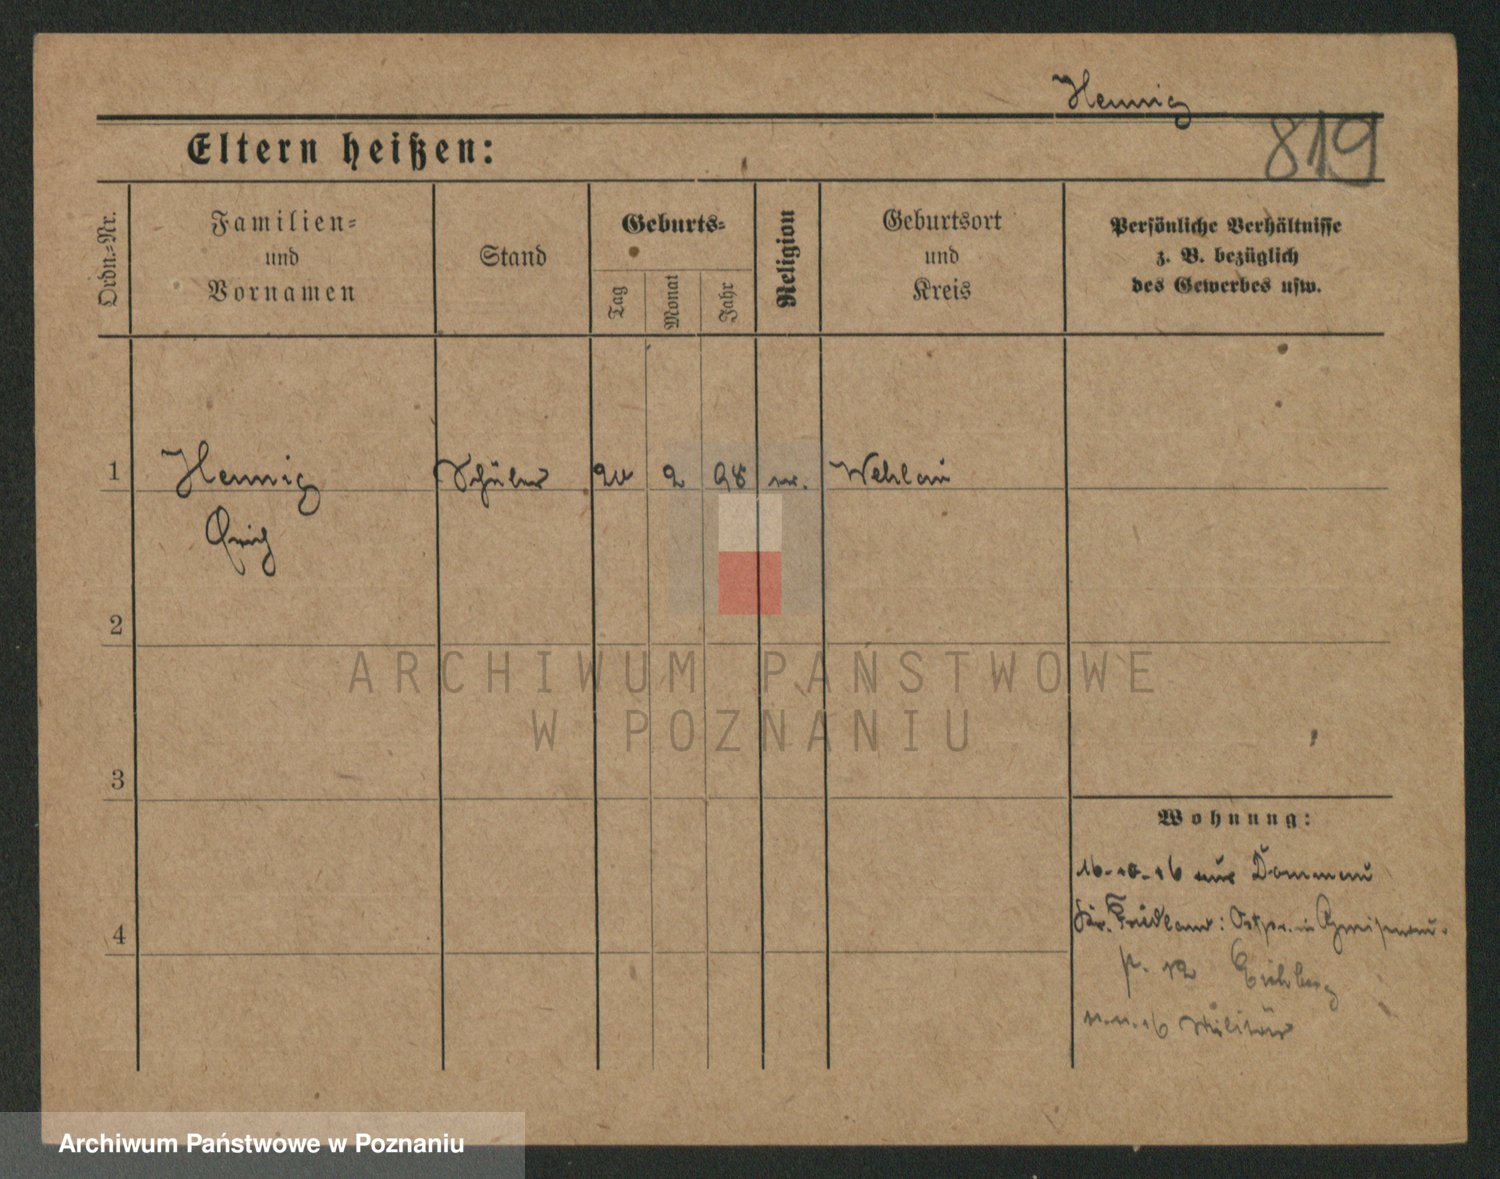 Hennig
819
Eltern heißen:
Ordn.-Nr.
Familien-
und
Vornamen
Stand
Geburts-
Tag
Monat
Jahr
Religion
Geburtsort
und
Kreis
Persönliche Verhältnisse
z. B. bezüglich
des Gewerbes usw.
1 Hennig Schüler 20 2 98 Wehlau
Erich
2
3
4
Wohnung:
16-10-16 aus Dommenau
Kr. Friedland: Ostpr. in
p. 12 Eichberg
11-11-16 Militär
ARCHIWUM PAŃSTWOWE
W POZNANIU
Archiwum Państwowe w Poznaniu